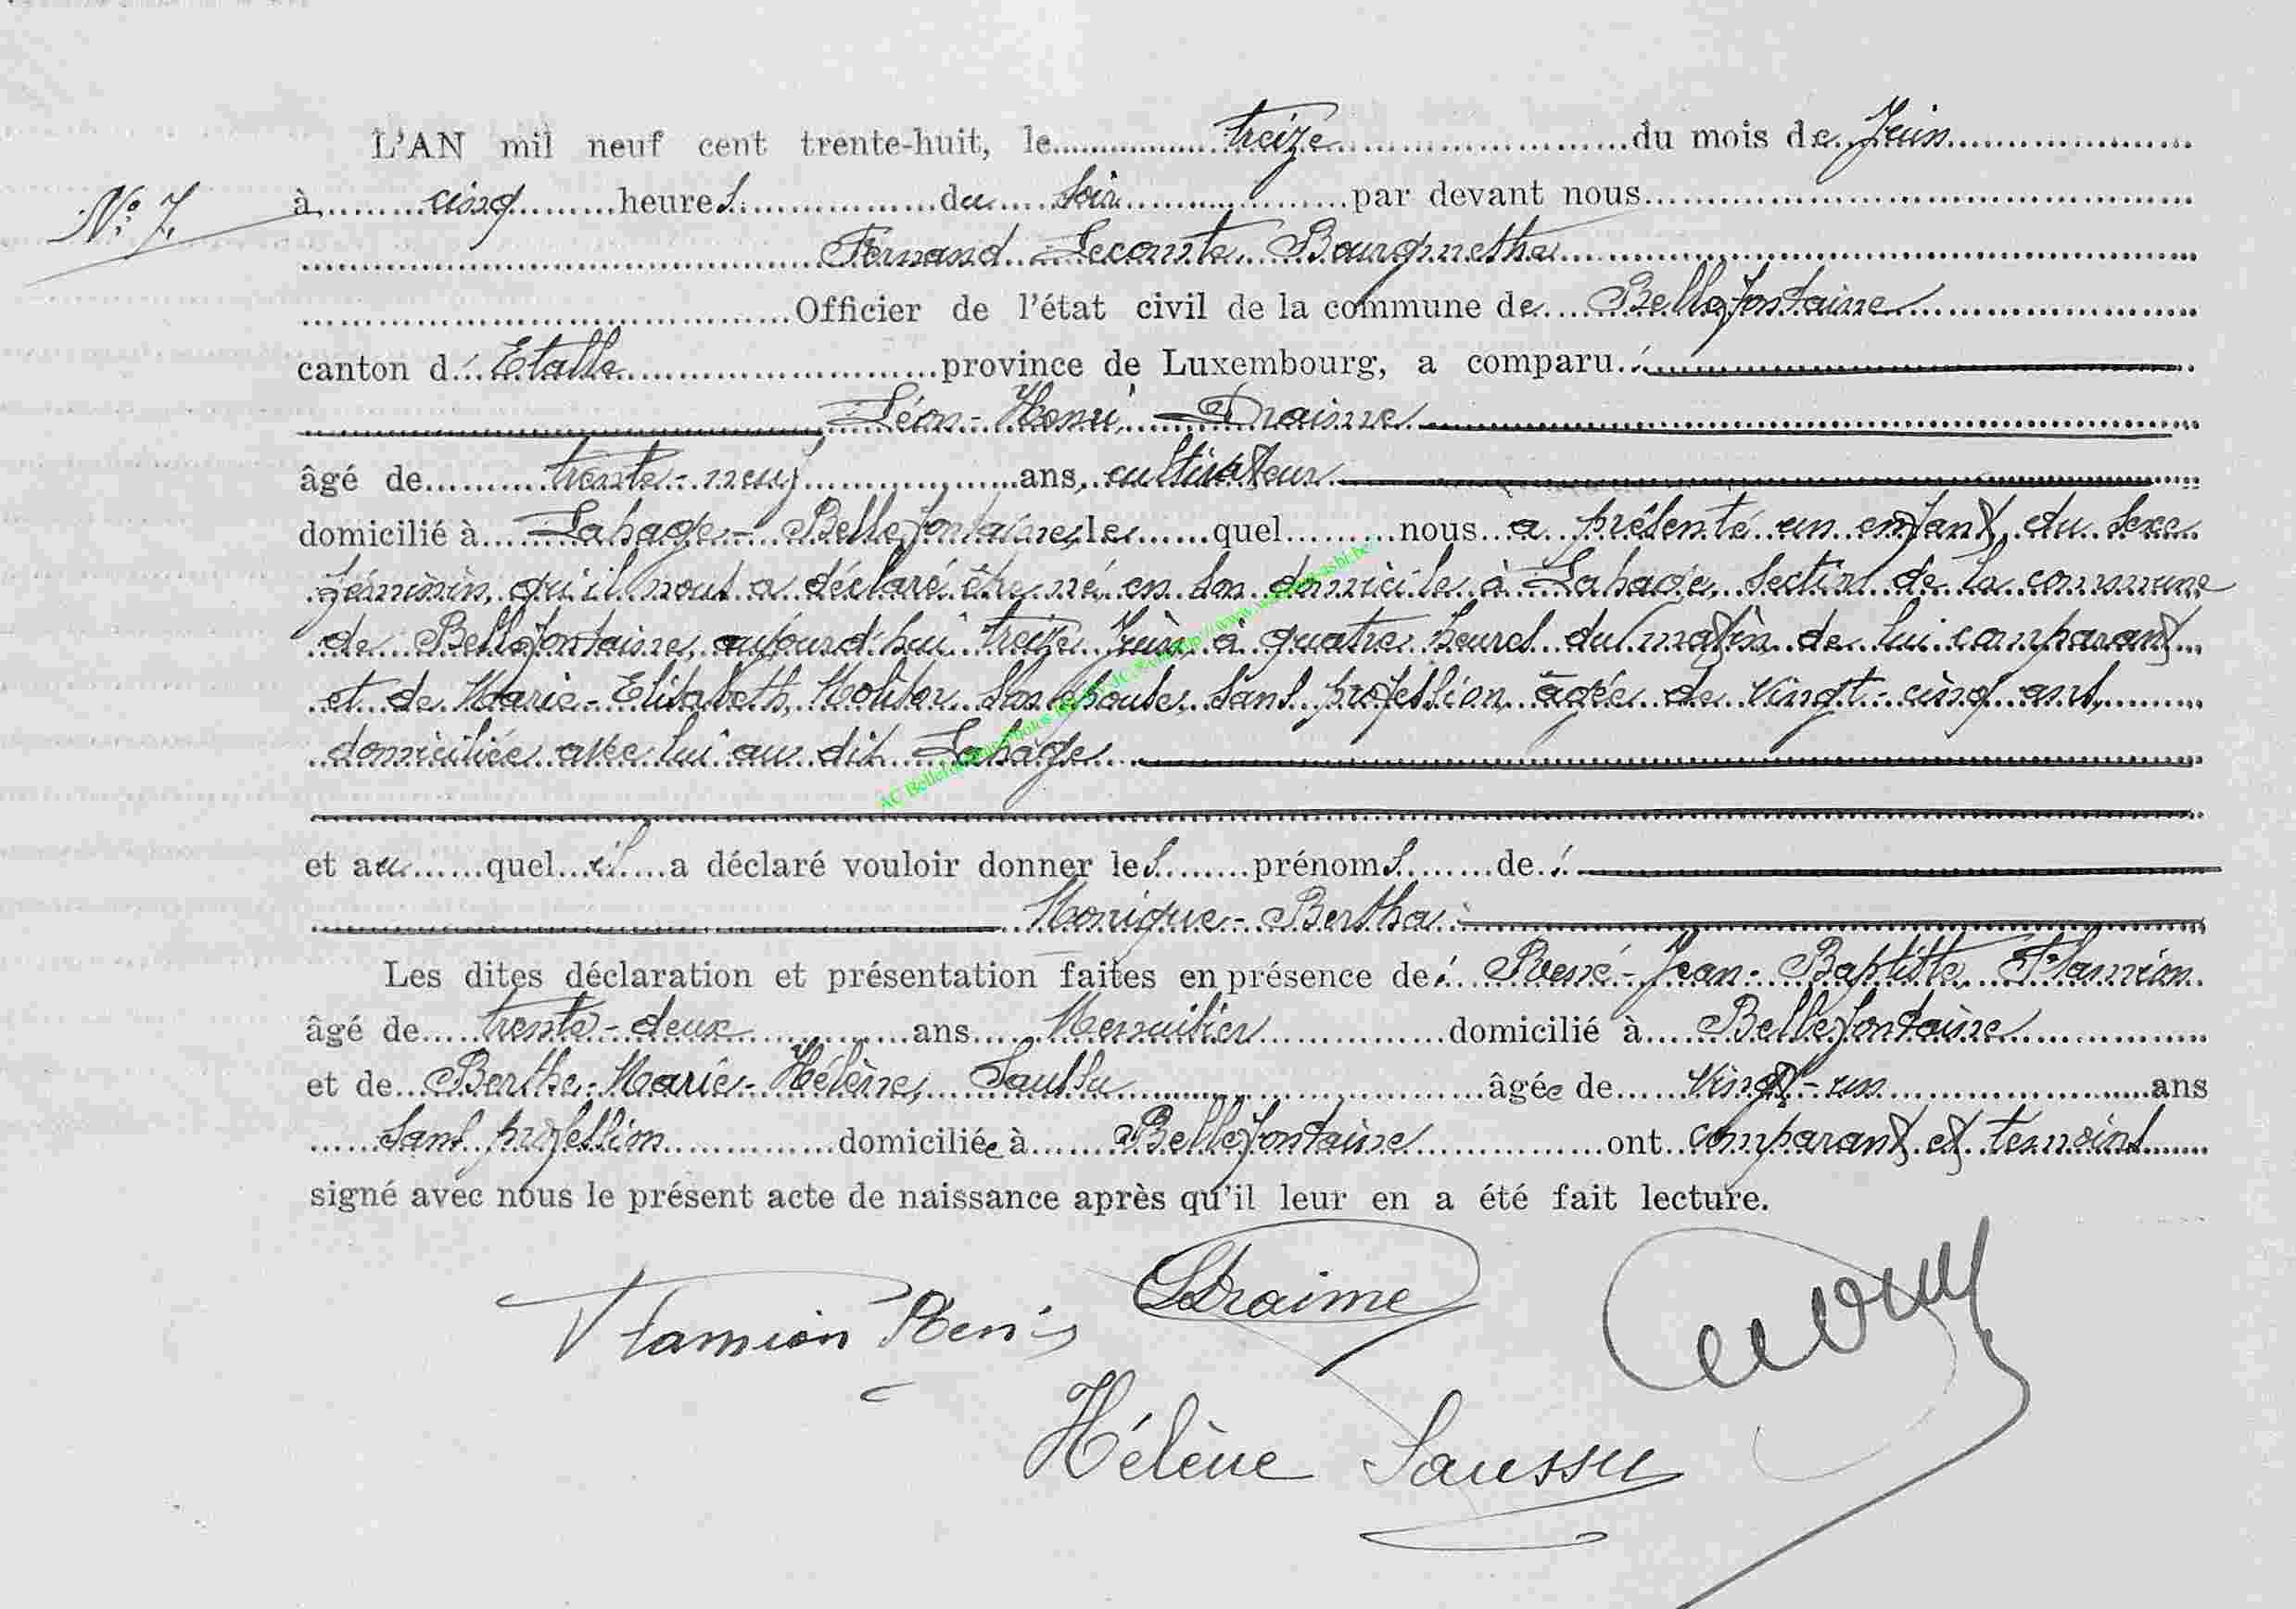 L'AN mil neuf cent trente-huit, le treize du mois de Juin
N° 7. à cinq heures du soir par devant nous
Fernand Lecomte
Officier de l'état civil de la commune de Bellefontaine
canton d' Etalle province de Luxembourg, a comparu :
Léon-Henri Draime
âgé de trente-neuf ans, cultivateur
domicilié à Lahage-Bellefontaine, le quel nous a présenté un enfant du sexe
féminin, qu'il nous a déclaré être né en son domicile à Lahage, section de la commune
de Bellefontaine, aujourd'hui treize Juin à quatre heures du matin de lui comparant
et de Marie-Elisabeth, Molitor son épouse, sans profession, âgée de vingt-cinq ans,
domiciliée avec lui au dit Lahage
et au quel il a déclaré vouloir donner les prénoms de :
Monique-Bertha
Les dites déclaration et présentation faites en présence de : René-Jean-Baptiste Flamion
âgé de trente-deux ans Menuisier domicilié à Bellefontaine
et de Berthe-Marie-Hélène, Saussu âgée de vingt-un ans
sans profession domiciliée à Bellefontaine ont comparant et témoins
signé avec nous le présent acte de naissance après qu'il leur en a été fait lecture.
Flamion René LDraime
Hélène Saussu